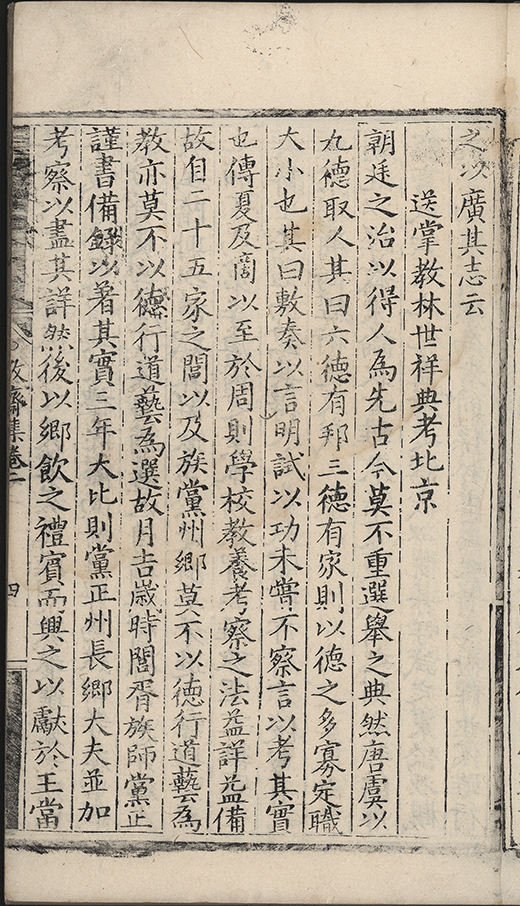 之以廣其志云
送掌教林世祥典考北京
朝廷之治以得人為先古今莫不重選舉之典然唐虞以
九德取人其曰六德有邦三德有家則以德之多寡定職
大小也其曰敷奏以言明試以功未嘗不察言以考其實
也傳夏及商以至於周則學校教養考察之法益詳益備
故自二十五家之閭以及族黨州鄉莫不以德行道藝為
教亦莫不以德行道藝為選故月吉歲時閭胥族師黨正
謹書備錄以着其實三年大比則黨正州長鄉大夫並加
考察以盡其詳然後以鄉飲之禮賓而興之以獻於王當
齋集卷一
四